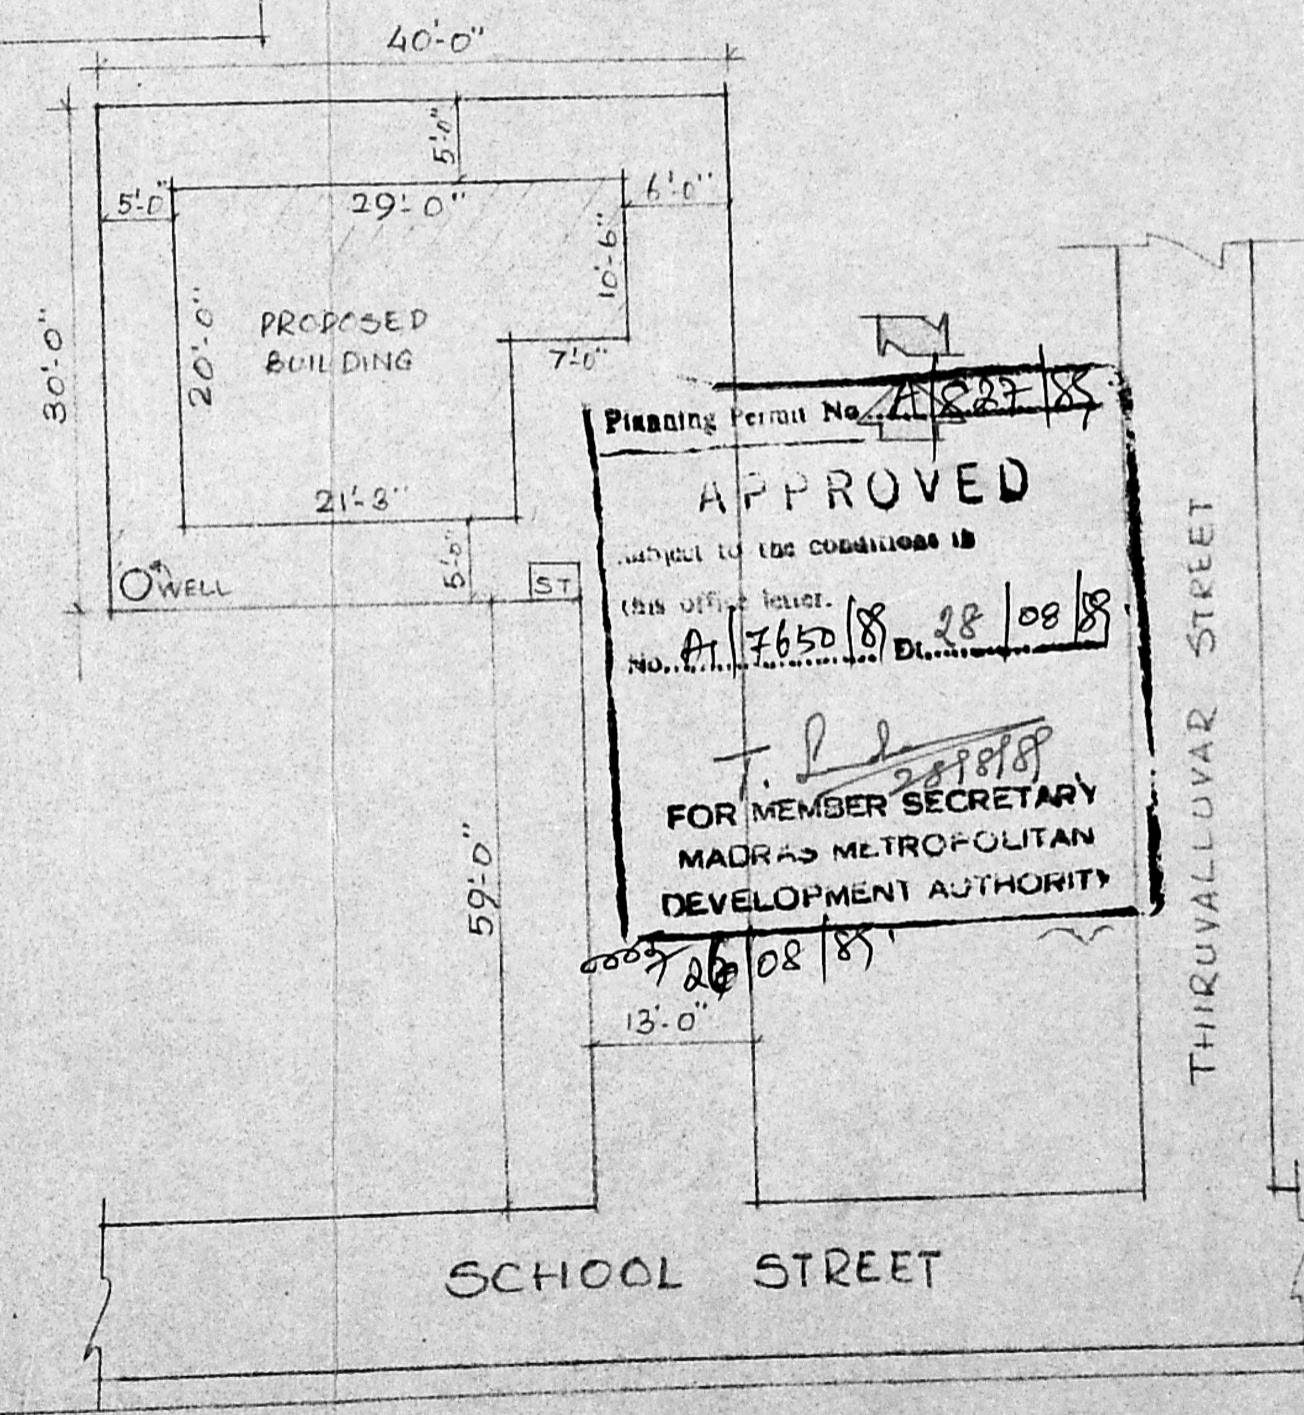 40'-0"
5'-0"
5'-0"
29'-0"
6'-0"
10'-6"
30'-0"
20'-0"
PROPOSED
BUILDING
7'-0"
21'-3"
5'-0"
WELL
ST
Planning Permit No. A/827/89
APPROVED
subject to the conditions in
this office letter.
No. A1/7650/89 Dt. 28/08/89.
28/8/89
FOR MEMBER SECRETARY
MADRAS METROPOLITAN
DEVELOPMENT AUTHORITY
08/89
59'-0"
13'-0"
THIRUVALLUVAR STREET
SCHOOL STREET